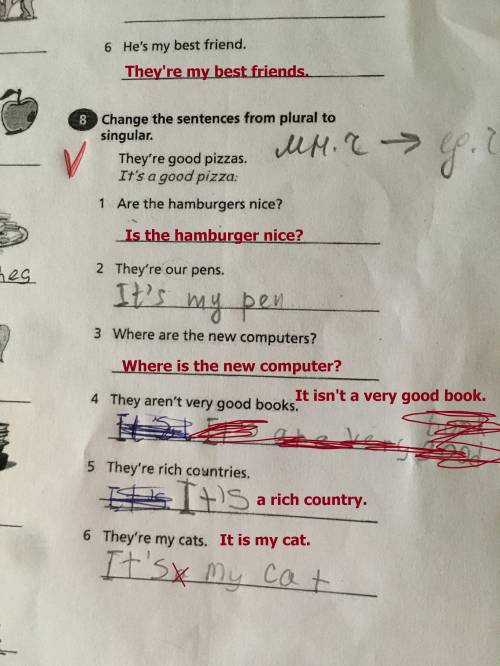 6 He's my best friend.
They're my best friends.
8 Change the sentences from plural to
singular.
мн.ч → ед.ч
They're good pizzas.
It's a good pizza.
1 Are the hamburgers nice?
Is the hamburger nice?
2 They're our pens.
It's my pen
3 Where are the new computers?
Where is the new computer?
4 They aren't very good books.
It isn't a very good book.
5 They're rich countries.
It's a rich country.
6 They're my cats. It is my cat.
It's my cat